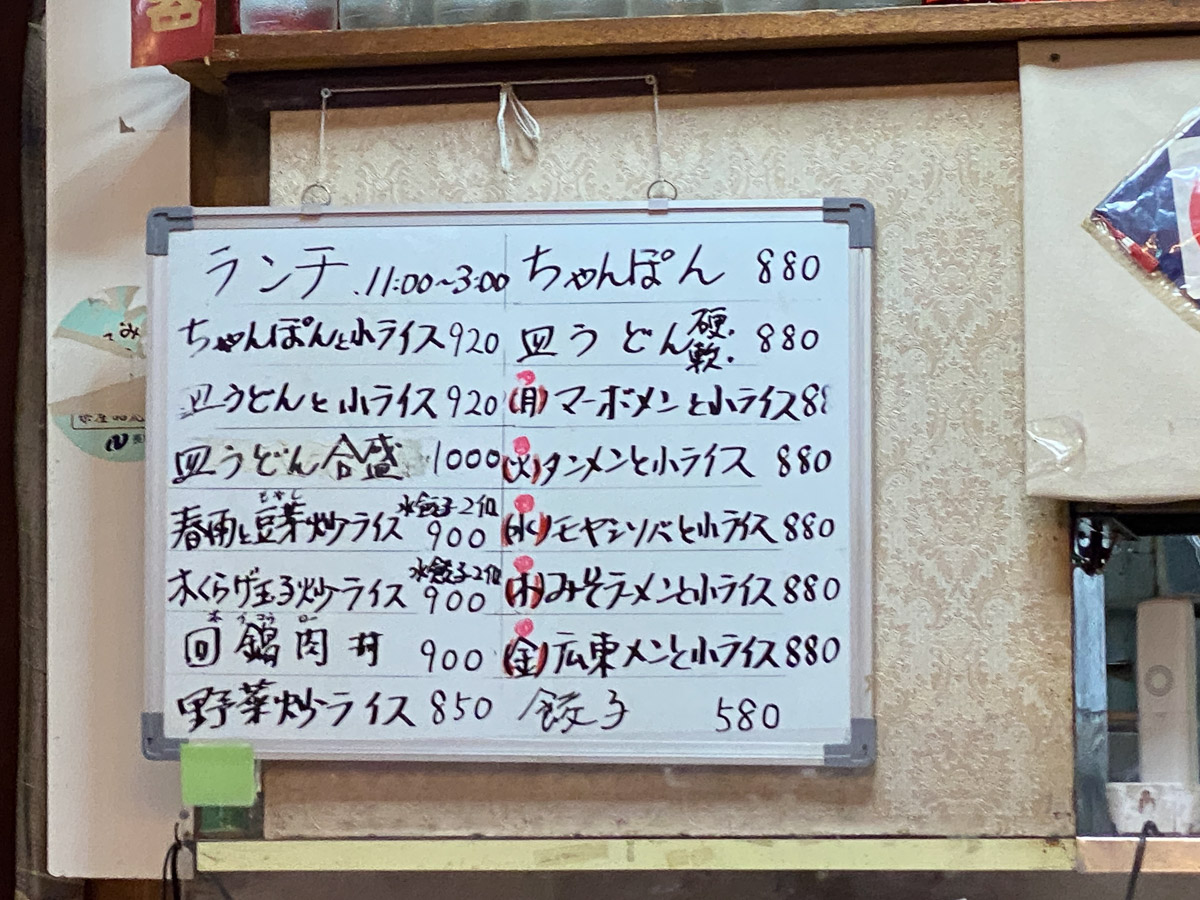 ランチ 11:00~3:00
ちゃんぽんと小ライス 920
皿うどんと小ライス 920
皿うどん合盛 1000
もやし 水餃子2個
春雨と豆芽炒ライス 900
水餃子2個
木くらげ玉子炒ライス 900
ホイコウロー
回鍋肉丼 900
野菜炒ライス 850
ちゃんぽん 880
皿うどん 硬. 軟. 880
(月)マーボメンと小ライス 88
(火)タンメンと小ライス 880
(水)モヤシソバと小ライス 880
(木)みそラーメンと小ライス 880
(金)広東メンと小ライス 880
餃子 580
み